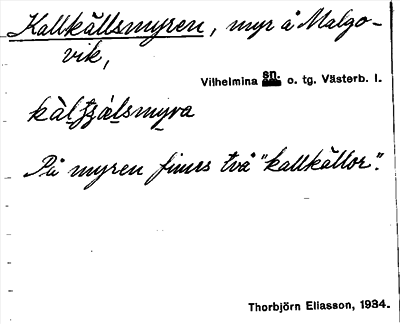 Kallkällsmyren, myr å Malgo-
vik,
Vilhelmina sn. o. tg. Västerb. l.
På myren finns två "kallkällor".
Thorbjörn Eliasson, 1934.